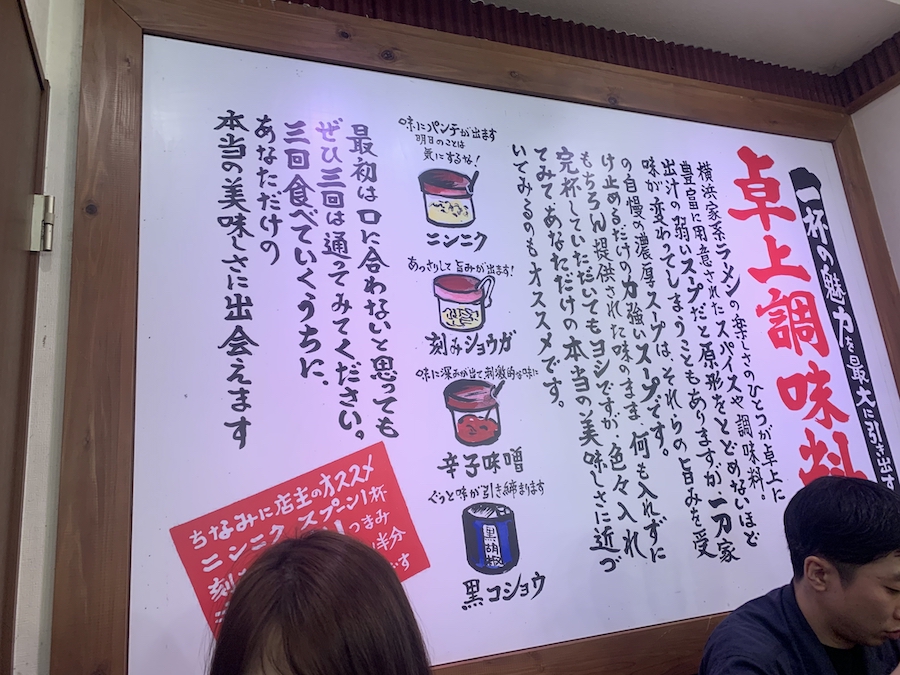 一杯の魅力を最大に引き出す
卓上調味料
横浜家系ラメンの楽しさのひとつが卓上に
豊富に用意されたスパイスや、調味料。
出汁の弱いスープだと原形をとどめないほど
味が変わってしまうこともありますが、一刀家
の自慢の濃厚スープは、それらの旨みを受
け止めるだけの力強いスープです。
もちろん提供された味のまま、何も入れずに
完杯していただいてもヨシですが、色々入れ
てみて、あなただけの本当の美味しさに近づ
いてみるのもオススメです。
味にパンチが出ます
明日のことは
気にするな!
ニンニク
あっさりして旨みが出ます!
刻みショウガ
味に深みが出て刺激的な味に
辛子味噌
ぐっと味が引き締まります
黒胡椒
黒コショウ
最初は口に合わないと思っても
ぜひ三回は通ってみてください。
三回食べていくうちに、
あなただけの
本当の美味しさに出会えます
ちなみに店主のオススメ
ニンニク スプーン1杯
刻
つまみ
半分
です